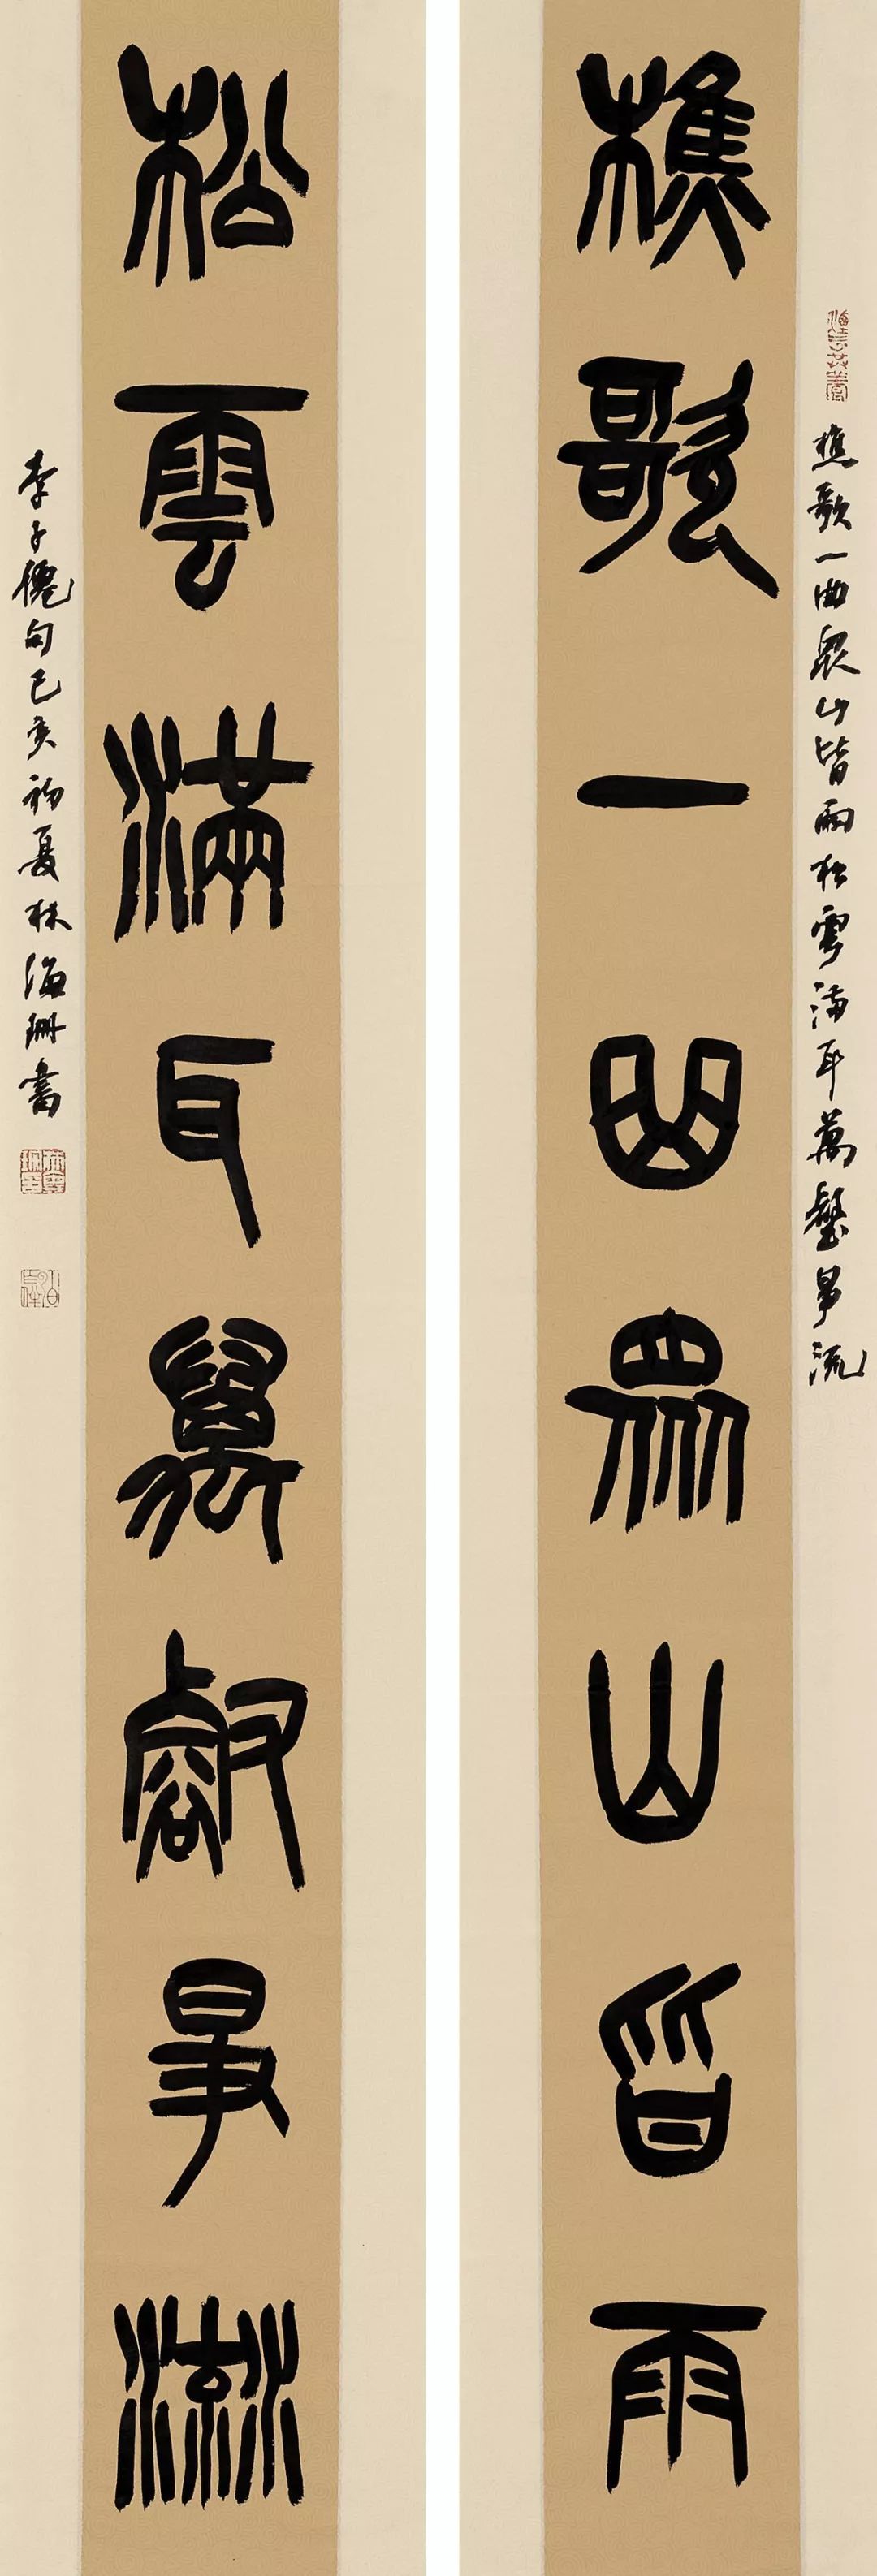 樵歌一曲眾山皆雨松雲滿耳萬壑爭流
樵歌一曲眾山皆雨
松雲滿耳萬壑爭流
李子僊句己亥初夏林海珊書